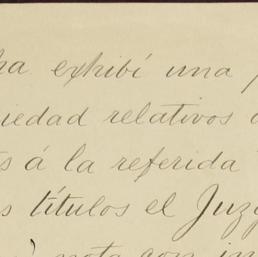 ha exhibí una
iedad relativos
s á la referida
s títulos el Juzg
nota con in